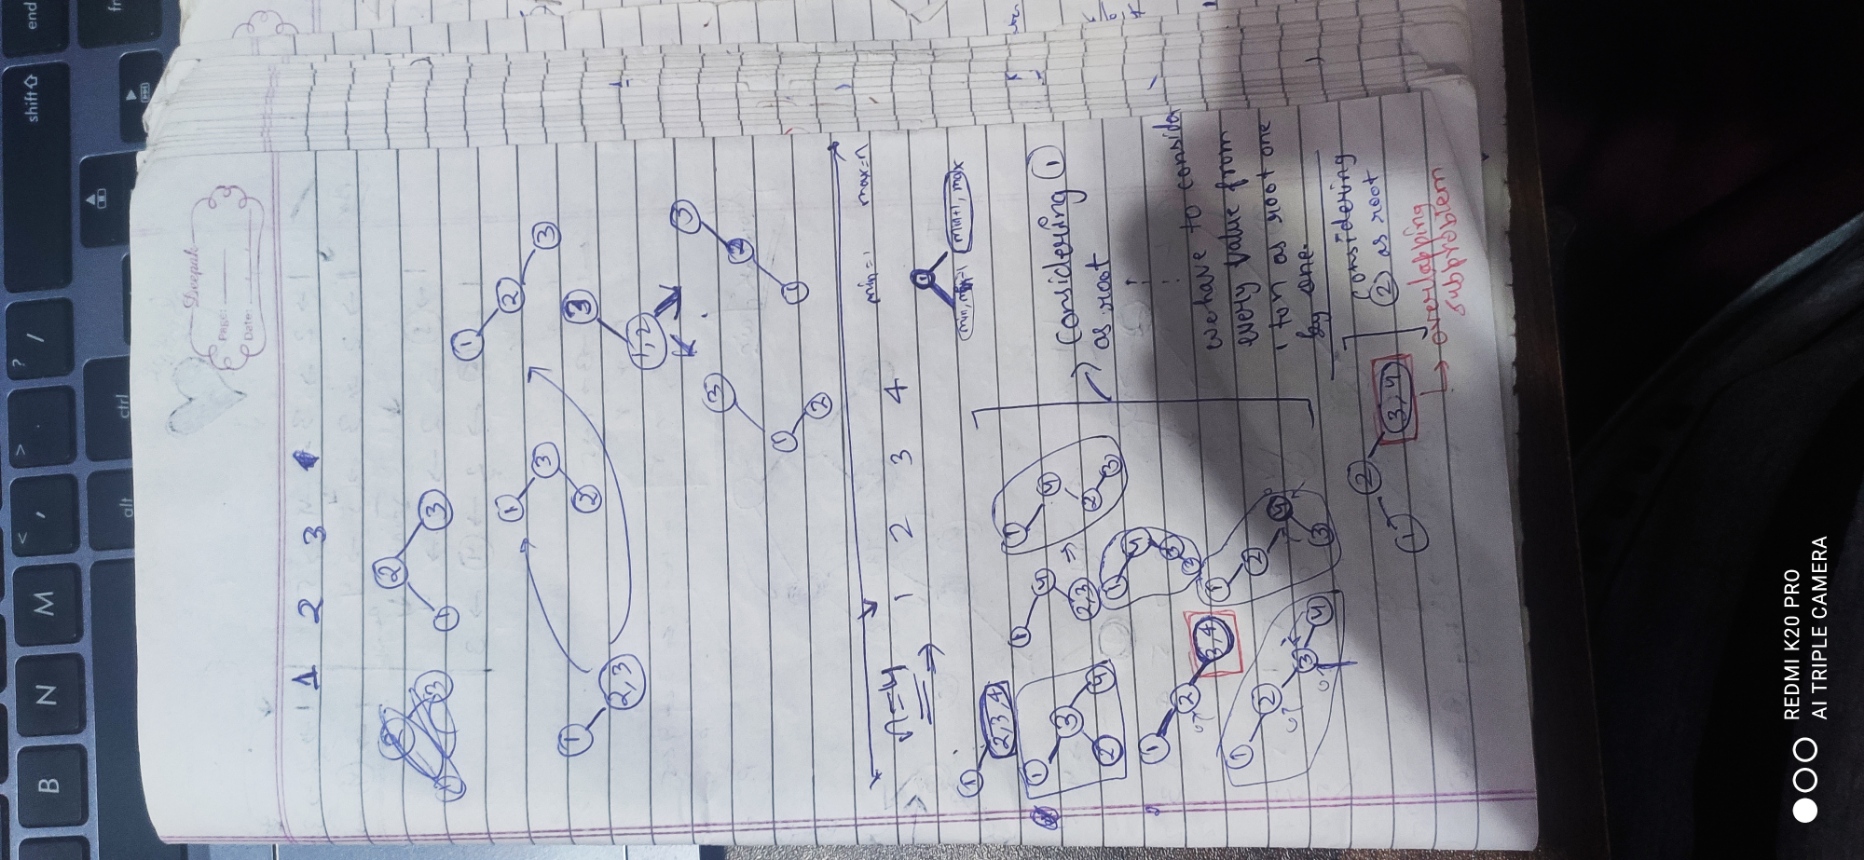 B N M < , > . ? / shift⇧ end
alt ctrl fr
Deepak
PAGE:
Date:
1 2 3
2
1 3
2
1 3
1
2
3
1
3
2
1
2, 3
3
1, 2
3
1
2
3
2
1
min=1 max=n
n=4
1 2 3 4
1
min+1, max
1
2,3,4
1
3
2 4
1
4
2,3
⇒
1
4
2
3
considering 1
as root
1
4
3
2
1
2
3,4
we have to conside
every value from
1 to n as root one
by one.
1
2
3
4
1
2
4
3
considering
2 as root
2
1
3,4
overlapping
subproblem
REDMI K20 PRO
AI TRIPLE CAMERA